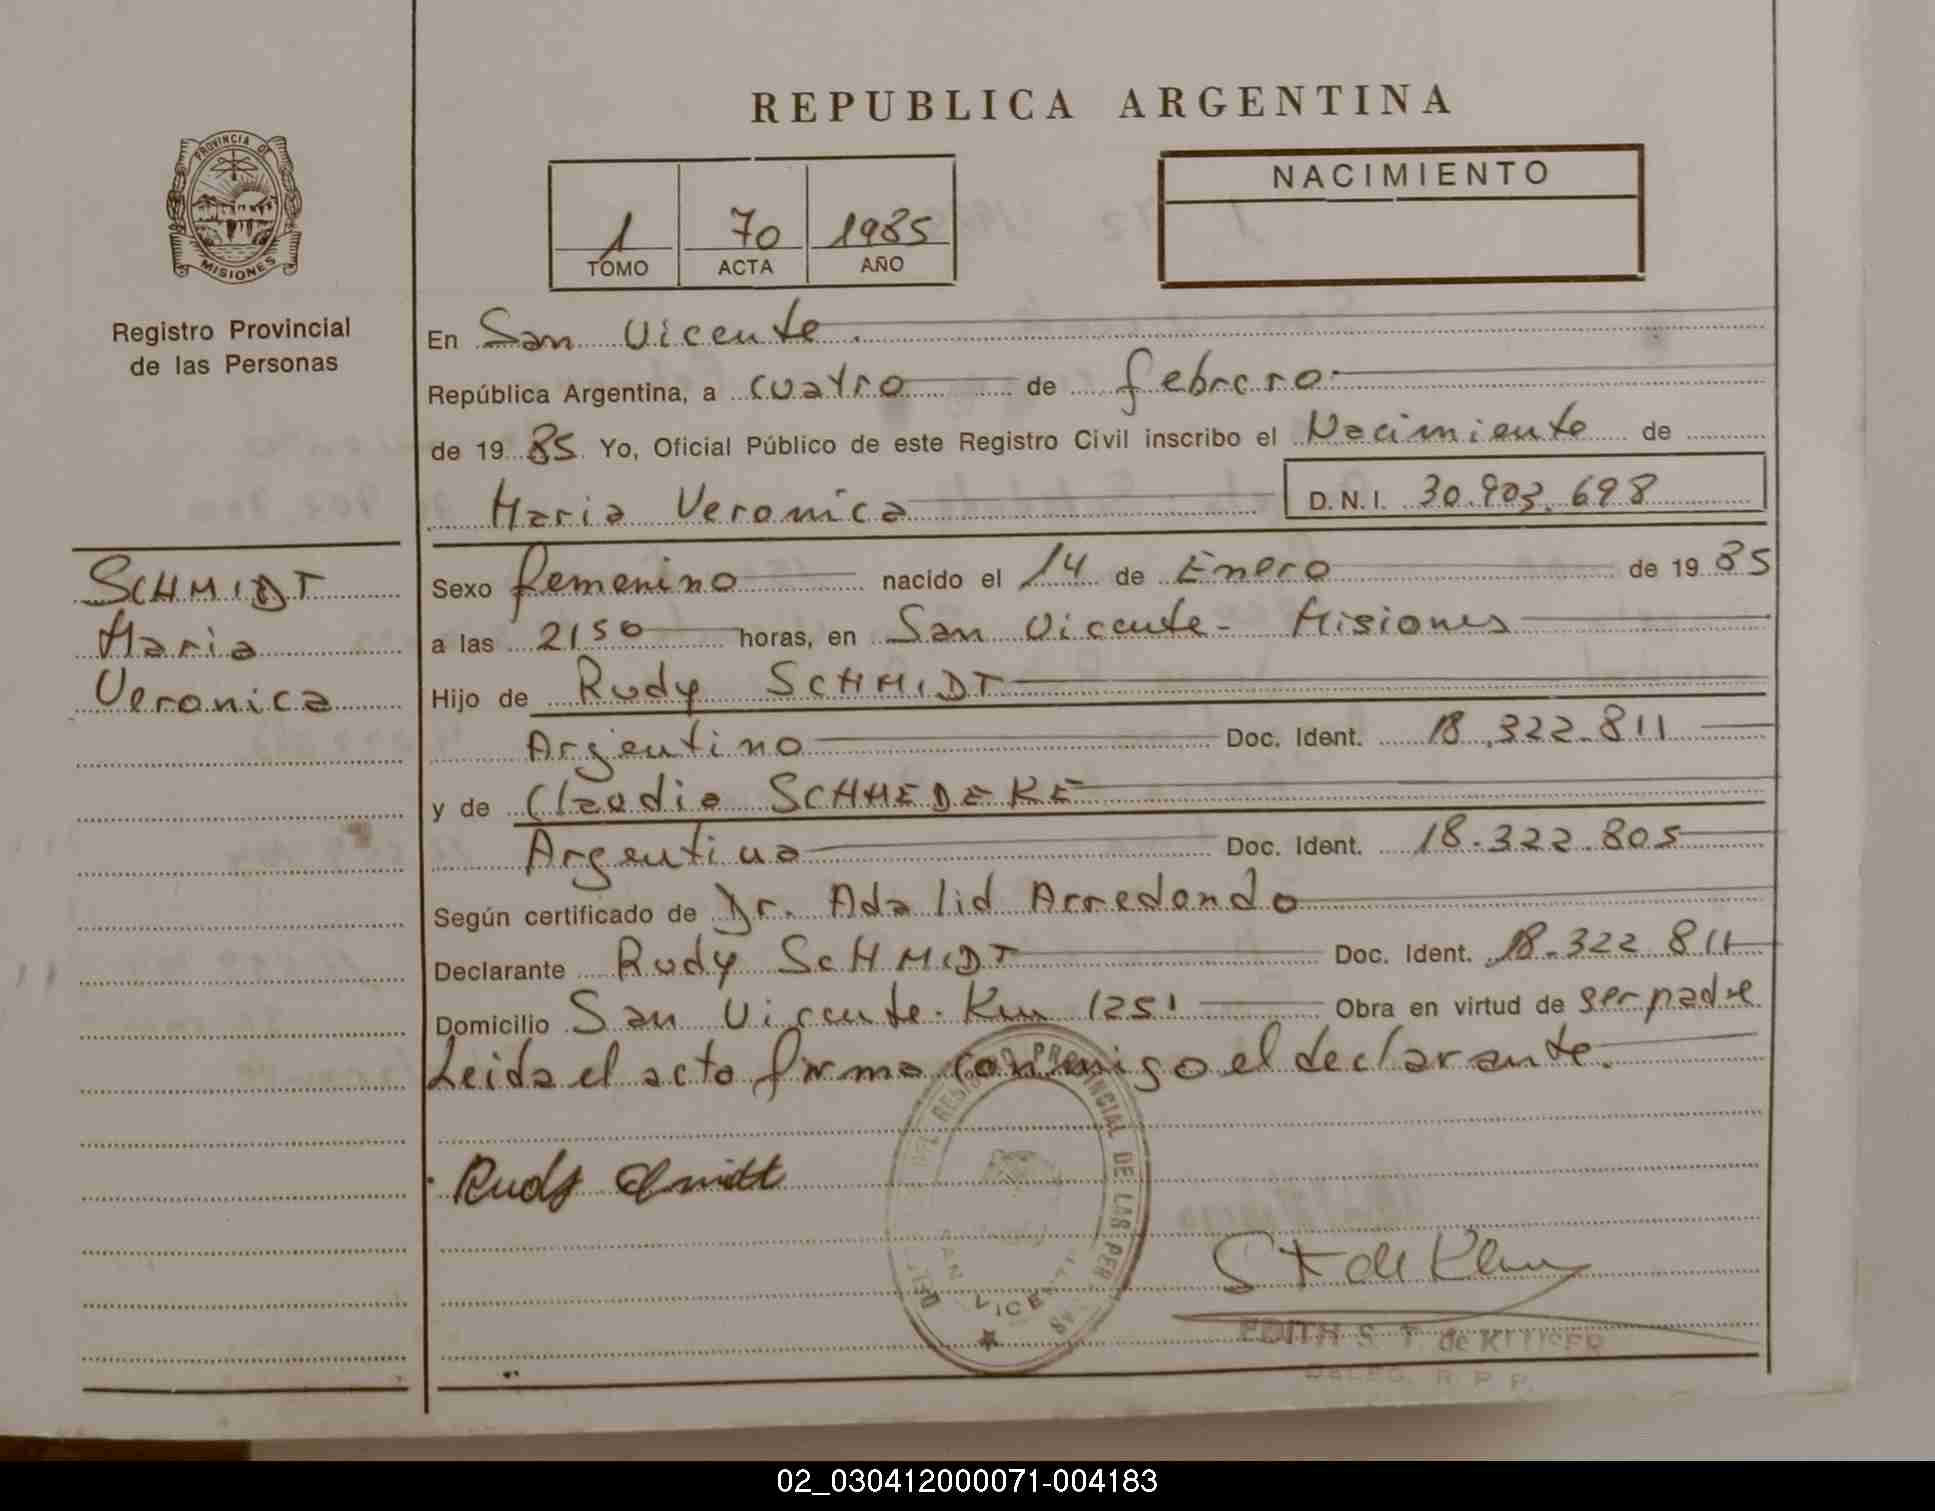 REPUBLICA ARGENTINA
PROVINCIA DE
MISIONES
Registro Provincial
de las Personas
1 70 1985
TOMO ACTA AÑO
NACIMIENTO
En San Vicente
República Argentina, a cuatro de febrero
de 1985 Yo, Oficial Público de este Registro Civil inscribo el Nacimiento de
Maria Veronica D.N.I. 30.903.698
SCHMIDT
Maria
Veronica
Sexo femenino nacido el 14 de Enero de 1985
a las 2150 horas, en San Vicente - Misiones
Hijo de Rudy SCHMIDT
Argentino Doc. Ident. 18.322.811
y de Claudia SCHMEDEKE
Argentina Doc. Ident. 18.322.805
Según certificado de Dr. Adalid Arredondo
Declarante Rudy SCHMIDT Doc. Ident. 18.322.811
Domicilio San Vicente. Km 1251 Obra en virtud de ser padre
Leida el acta firma conmigo el declarante.
PROVINCIAL DE LAS PER
SAN VICENTE
Rudy
EDITH S. T. de
DELEG. R. P. P.
02_030412000071-004183